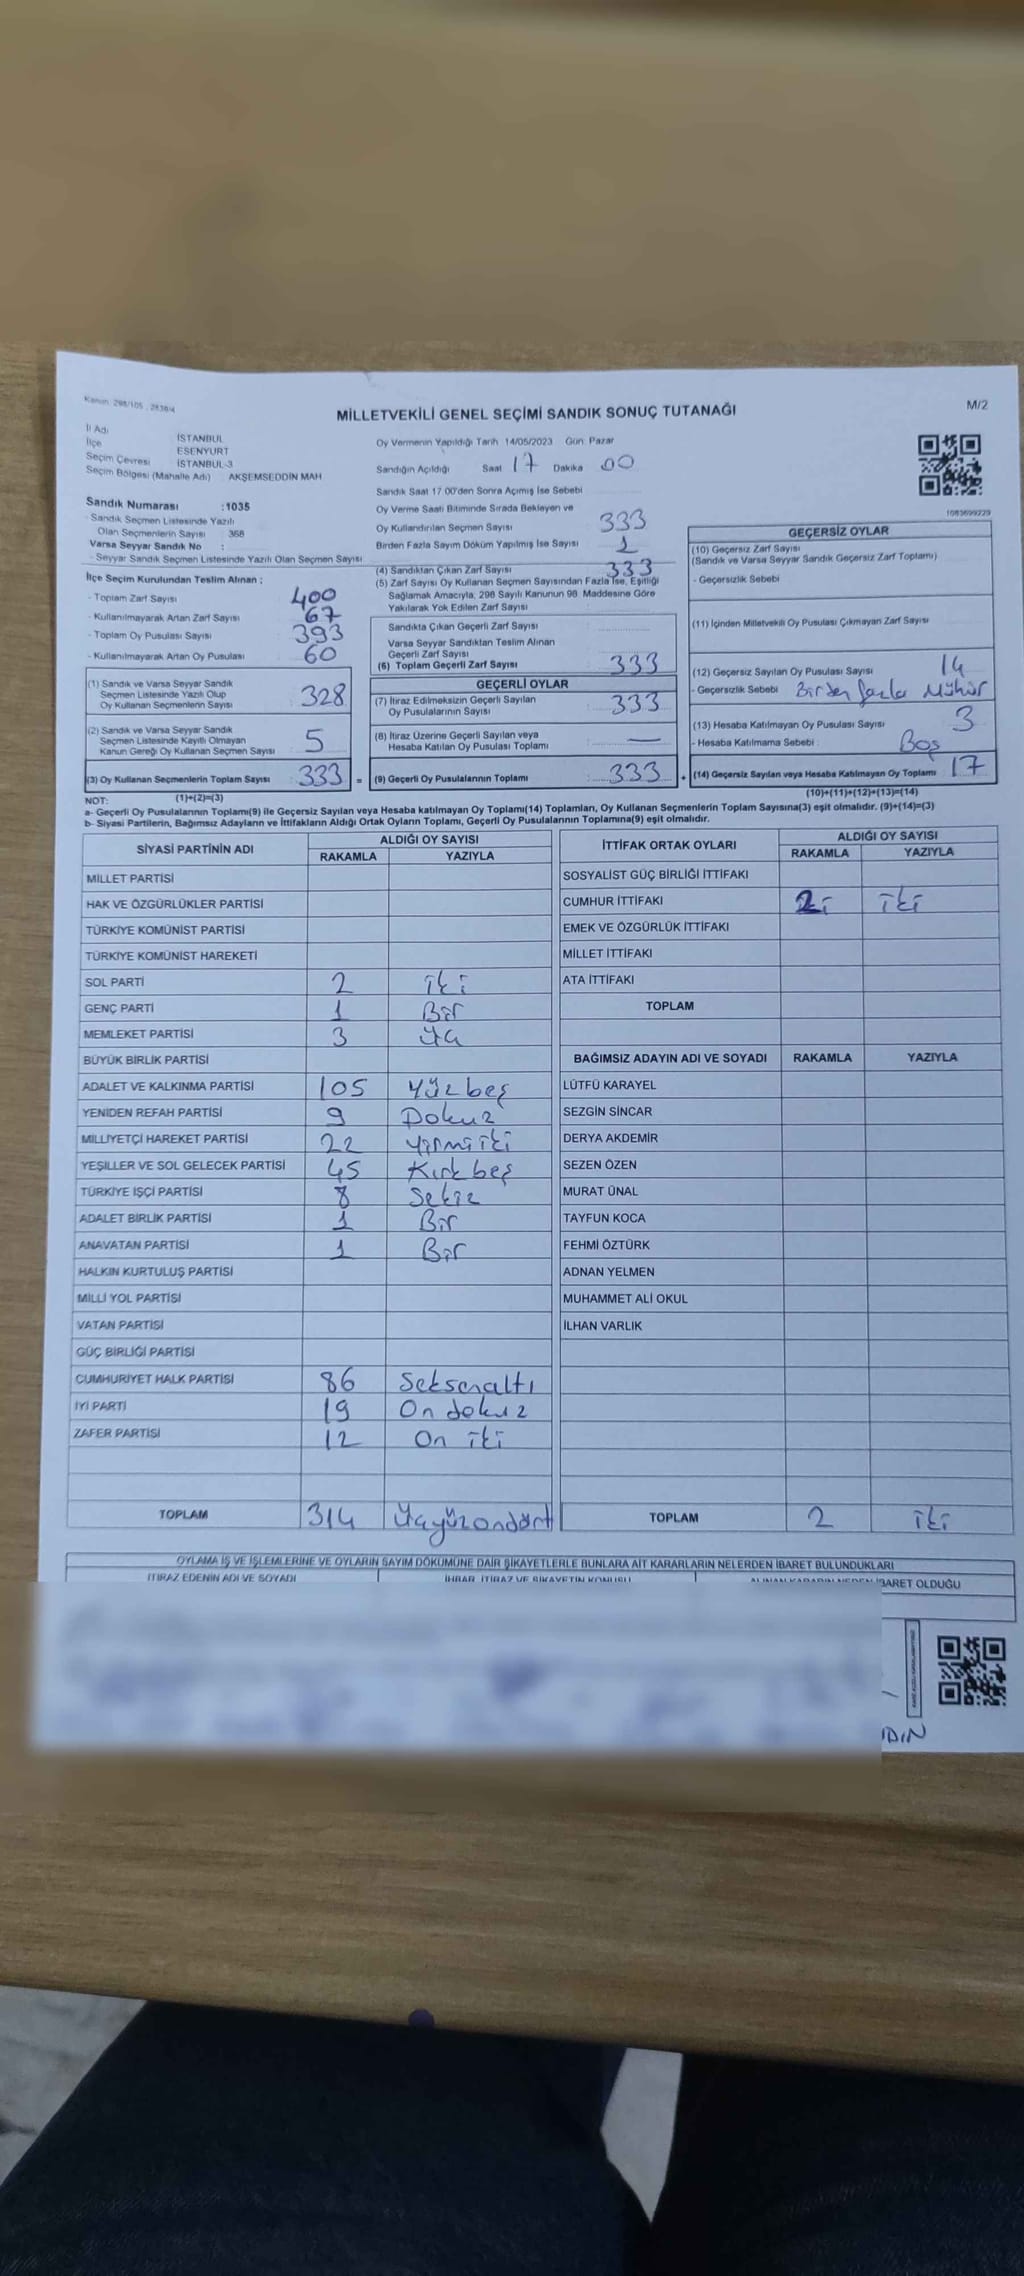 Kanun: 298/105 , 2839/4
MİLLETVEKİLİ GENEL SEÇİMİ SANDIK SONUÇ TUTANAĞI
M/2
İl Adı İSTANBUL
İlçe ESENYURT
Seçim Çevresi İSTANBUL-3
Seçim Bölgesi (Mahalle Adı) : AKŞEMSEDDİN MAH
Oy Vermenin Yapıldığı Tarih 14/05/2023 Gün: Pazar
Sandığın Açıldığı Saat 17 Dakika 00
Sandık Saat 17:00'den Sonra Açımış İse Sebebi
Sandık Numarası :1035
- Sandık Seçmen Listesinde Yazılı
Olan Seçmenlerin Sayısı 368
Varsa Seyyar Sandık No :
- Seyyar Sandık Seçmen Listesinde Yazılı Olan Seçmen Sayısı
Oy Verme Saati Bitiminde Sırada Bekleyen ve
Oy Kullandırılan Seçmen Sayısı 333
Birden Fazla Sayım Döküm Yapılmış İse Sayısı 1
İlçe Seçim Kurulundan Teslim Alınan ;
- Toplam Zarf Sayısı 400
- Kullanılmayarak Artan Zarf Sayısı 67
- Toplam Oy Pusulası Sayısı 393
- Kullanılmayarak Artan Oy Pusulası 60
(4) Sandıktan Çıkan Zarf Sayısı 333
(5) Zarf Sayısı Oy Kullanan Seçmen Sayısından Fazla İse, Eşitliği
Sağlamak Amacıyla, 298 Sayılı Kanunun 98. Maddesine Göre
Yakılarak Yok Edilen Zarf Sayısı :
Sandıkta Çıkan Geçerli Zarf Sayısı
Varsa Seyyar Sandıktan Teslim Alınan
Geçerli Zarf Sayısı
(6) Toplam Geçerli Zarf Sayısı 333
(1) Sandık ve Varsa Seyyar Sandık
Seçmen Listesinde Yazılı Olup
Oy Kullanan Seçmenlerin Sayısı 328
(2) Sandık ve Varsa Seyyar Sandık
Seçmen Listesinde Kayıtlı Olmayan
Kanun Gereği Oy Kullanan Seçmen Sayısı 5
(3) Oy Kullanan Seçmenlerin Toplam Sayısı : 333 =
GEÇERLİ OYLAR
(7) İtiraz Edilmeksizin Geçerli Sayılan
Oy Pusulalarının Sayısı : 333
(8) İtiraz Üzerine Geçerli Sayılan veya
Hesaba Katılan Oy Pusulası Toplamı : —
(9) Geçerli Oy Pusulalarının Toplamı : 333 +
1083699229
GEÇERSİZ OYLAR
(10) Geçersiz Zarf Sayısı
(Sandık ve Varsa Seyyar Sandık Geçersiz Zarf Toplamı)
- Geçersizlik Sebebi
(11) İçinden Milletvekili Oy Pusulası Çıkmayan Zarf Sayısı
(12) Geçersiz Sayılan Oy Pusulası Sayısı 14
- Geçersizlik Sebebi Birden fazla Mühür
(13) Hesaba Katılmayan Oy Pusulası Sayısı 3
- Hesaba Katılmama Sebebi : Boş
(14) Geçersiz Sayılan veya Hesaba Katılmayan Oy Toplamı 17
NOT: (1)+(2)=(3) (10)+(11)+(12)+(13)=(14)
a- Geçerli Oy Pusulalarının Toplamı(9) ile Geçersiz Sayılan veya Hesaba katılmayan Oy Toplamı(14) Toplamları, Oy Kullanan Seçmenlerin Toplam Sayısına(3) eşit olmalıdır. (9)+(14)=(3)
b- Siyasi Partilerin, Bağımsız Adayların ve İttifakların Aldığı Ortak Oyların Toplamı, Geçerli Oy Pusulalarının Toplamına(9) eşit olmalıdır.
SİYASİ PARTİNİN ADI ALDIĞI OY SAYISI
RAKAMLA YAZIYLA
MİLLET PARTİSİ
HAK VE ÖZGÜRLÜKLER PARTİSİ
TÜRKİYE KOMÜNİST PARTİSİ
TÜRKİYE KOMÜNİST HAREKETİ
SOL PARTİ 2 iki
GENÇ PARTİ 1 Bir
MEMLEKET PARTİSİ 3 üç
BÜYÜK BİRLİK PARTİSİ
ADALET VE KALKINMA PARTİSİ 105 Yüzbeş
YENİDEN REFAH PARTİSİ 9 Dokuz
MİLLİYETÇİ HAREKET PARTİSİ 22 Yirmi iki
YEŞİLLER VE SOL GELECEK PARTİSİ 45 Kırk beş
TÜRKİYE İŞÇİ PARTİSİ 8 Sekiz
ADALET BİRLİK PARTİSİ 1 Bir
ANAVATAN PARTİSİ 1 Bir
HALKIN KURTULUŞ PARTİSİ
MİLLİ YOL PARTİSİ
VATAN PARTİSİ
GÜÇ BİRLİĞİ PARTİSİ
CUMHURİYET HALK PARTİSİ 86 Seksenaltı
İYİ PARTİ 19 On dokuz
ZAFER PARTİSİ 12 On iki
TOPLAM 314 Üçyüzondört
İTTİFAK ORTAK OYLARI ALDIĞI OY SAYISI
RAKAMLA YAZIYLA
SOSYALİST GÜÇ BİRLİĞİ İTTİFAKI
CUMHUR İTTİFAKI 2 iki
EMEK VE ÖZGÜRLÜK İTTİFAKI
MİLLET İTTİFAKI
ATA İTTİFAKI
TOPLAM
BAĞIMSIZ ADAYIN ADI VE SOYADI RAKAMLA YAZIYLA
LÜTFÜ KARAYEL
SEZGİN SİNCAR
DERYA AKDEMİR
SEZEN ÖZEN
MURAT ÜNAL
TAYFUN KOCA
FEHMİ ÖZTÜRK
ADNAN YELMEN
MUHAMMET ALİ OKUL
İLHAN VARLIK
TOPLAM 2 iki
OYLAMA İŞ VE İŞLEMLERİNE VE OYLARIN SAYIM DÖKÜMÜNE DAİR ŞİKAYETLERLE BUNLARA AİT KARARLARIN NELERDEN İBARET BULUNDUKLARI
İTİRAZ EDENİN ADI VE SOYADI İHBAR, İTİRAZ VE ŞİKAYETİN KONUSU ALINAN KARARIN NEDEN İBARET OLDUĞU